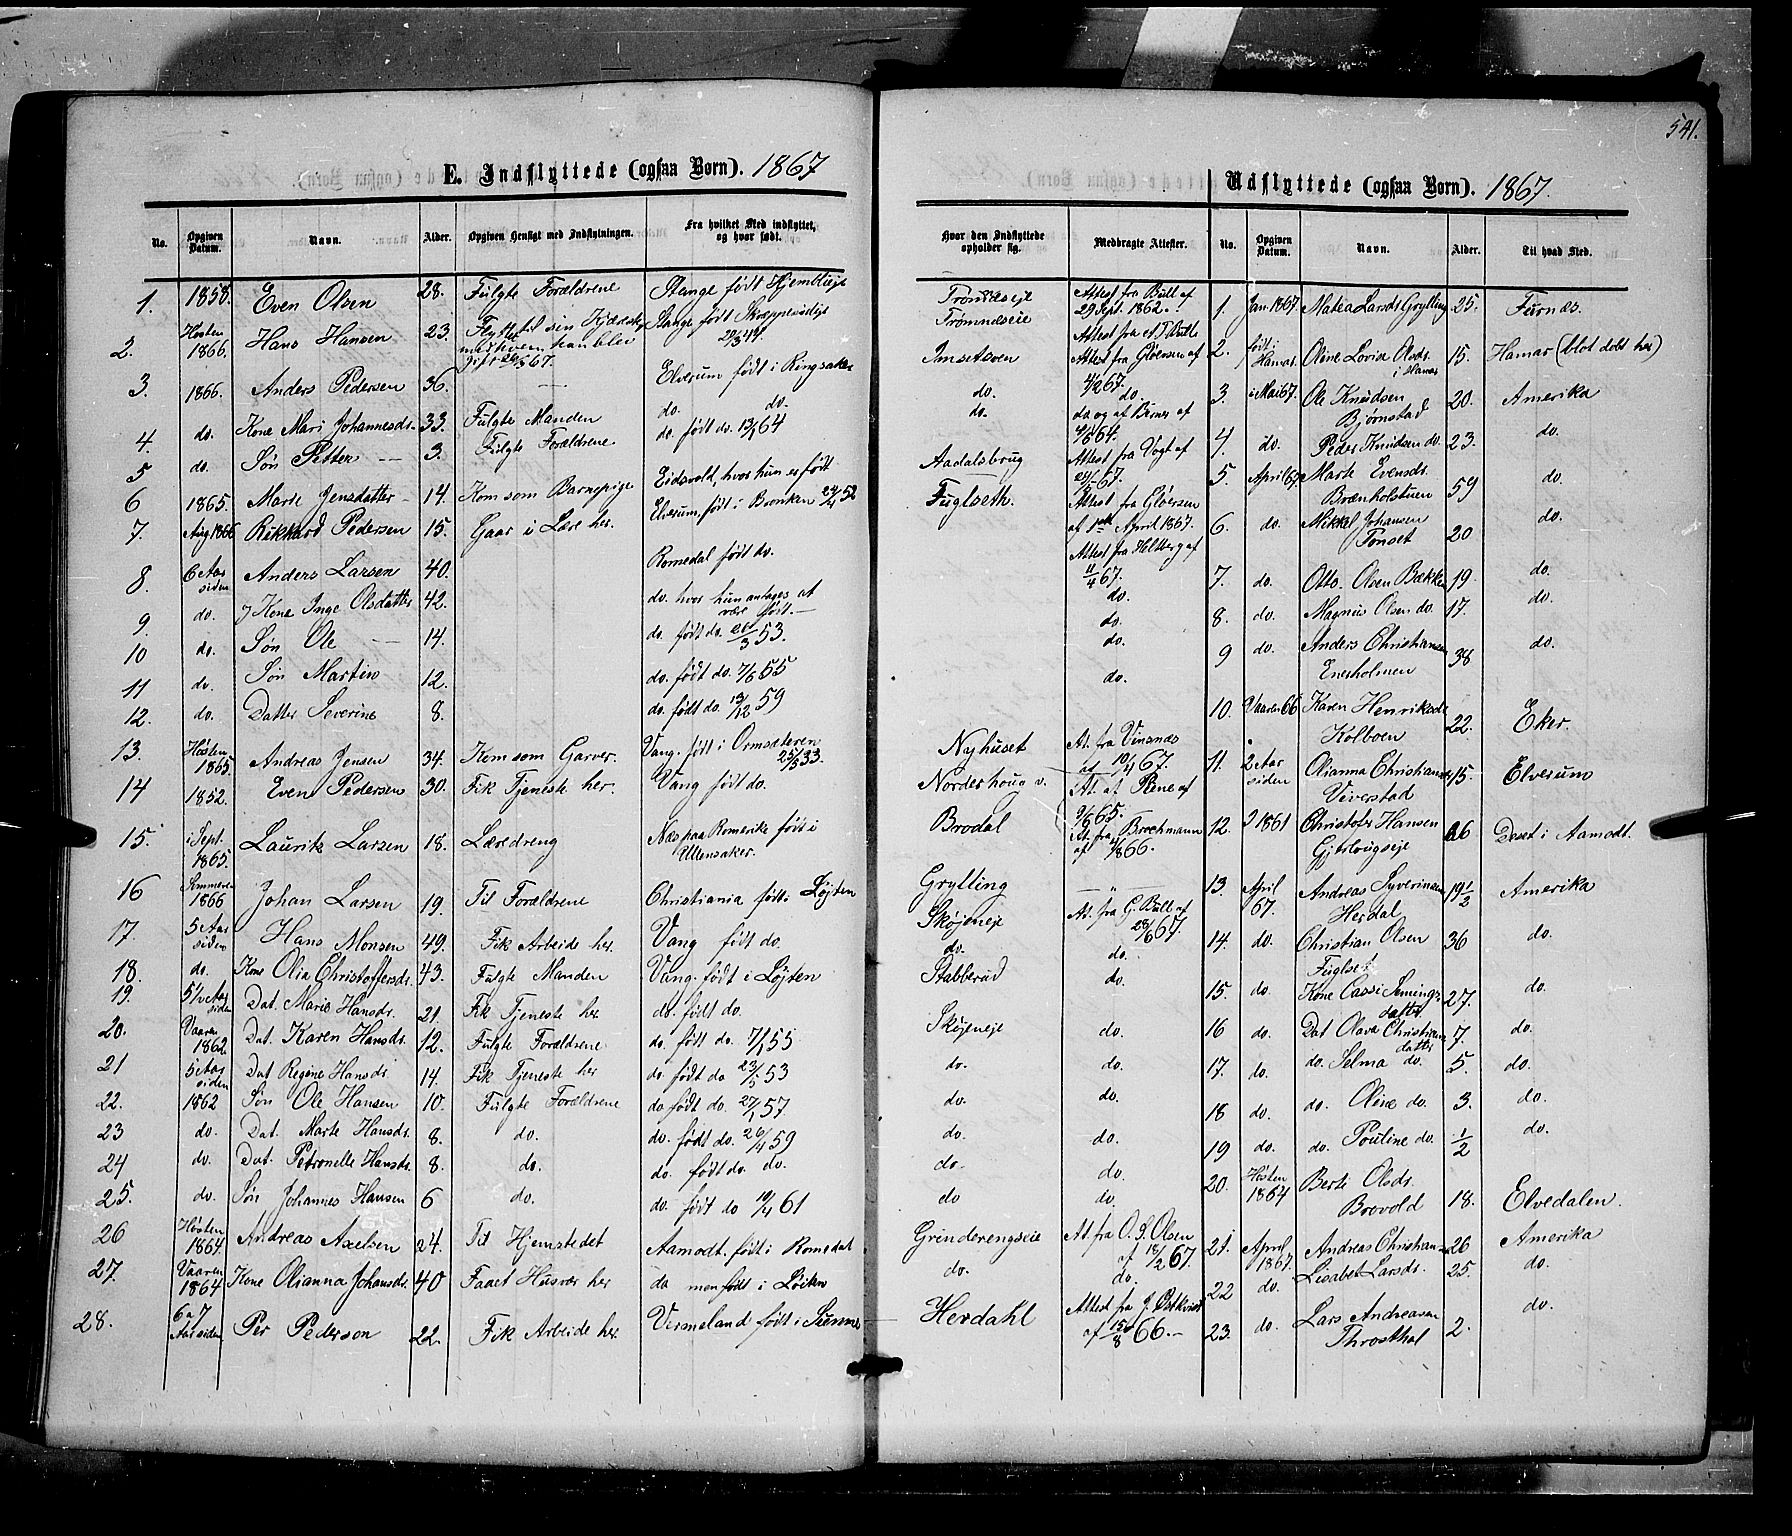 541.
E. Indflyttede (ogsaa Børn). 1867
No. Opgiven Datum. Navn. Alder. Opgiven Hensigt med Indflytningen. Fra hvilket Sted indflyttet, og hvor født.
1. 1858. Even Olsen 28. Fulgte Forældrene Stange født Hjemstieje
2. Høsten 1866. Hans Hansen 23. Stange født
3. 1866. Anders Pedersen 36. — Elverum født i Ringsaker
4. do. Kone Mari Johannesdr. 33. Fulgte Manden do. do.
5 do. Søn Petter — 3. Fulgte Forældrene do født do. 13/1 64
6 1865. Marte Jensdatter — 14. Kom som Barnepige Eidsvold, hvor hun er født
7. Aug 1866 Rikhard Pedersen 15. Gaar i Lære her. Elverum, født i Bronken 24/4 52
8. 6 Aar siden Anders Larsen 40. Romedal født do.
9. do. Kone Inge Olsdatter 42. do. hvor hun antages at være født. —
10 do. Søn Ole — 14. do. født do. 21/3 53.
11 do. Søn Martin 12. do. født do. 7/6 55
12. do. Datter Severine 8. do. født do. 13/12 59
13. Høsten 1865. Andreas Jensen 34. Kom som Garver. Vang. født i Ormsæteren 25/5 33.
14 1852. Even Pedersen 30. Fik Tjeneste her. Vang født do.
15. i Sept. 1865. Lauritz Larsen 18. Læredreng Næs paa Romerike født i Ullensaker.
16 Sommeren 1866 Johan Larsen 19. Til Forældrene Christiania født i Løjten
17. 5 Aar siden Hans Monsen 49. Fik Arbeide her. Vang født do.
18. do. Kone Olia Christoffersdr. 43. Fulgte Manden Vang. født i Løjten
19. 5½ Aar siden Dat. Marie Hansdr. 21. Fik Tjeneste her do. født do.
20. Vaaren 1862. Dat. Karen Hansdr. 12. Fulgte Forældrene do. født do. 7/1 55
21 5 Aar siden Dat Regine Hansdr. 14. Fik Tjeneste her do. født do 23/5 53
22. 1862 Søn Ole Hansen 10. Fulgte Forældrene do født do. 27/1 57.
23 do. Dat. Marte Hansdr. 8. do. do. født do. 26/4 59
24 do. Dat. Petronelle Hansdr. 8. do. do. født do. do.
25. do. Søn Johannes Hansen 6 do. do. født do 10/4 61
26 Høsten 1864. Andreas Axelsen 24. Til Hjemstedet Aamodt. født i Romedal
27. Vaaren 1864 Kone Olianna Johansdr. 40 Faaet Husvær her do men født i Løiten
28. 6 a 7 Aar siden Per Pederson 22. Fik Arbeide her. Vermeland født i Sunne
Hvor den Indflyttede opholder sig. Medbragte Attester.
Trømnæseje Attest fra Bull af 29 Sept. 1862.
Trømnæseie Attest fra Bull
Imsetsven Attest fra Gløersen af 4/2 67.
do. do.
do. do og af Berner af 4/6 64.
Aadalsbrug Attest fra Vogt af
Fuglseth. Attest fra Gløersen af 1ste April 1867.
Attest fra Heltberg af 11/4 67.
do.
do.
do.
do.
Nyhuset At. fra Vinsnæs af 10/4 67.
Norderhoug v. At. af Stene af 9/6 65.
Brodal At. fra Brochmann af 4/8 66.
Grylling — " —
Skøjeneje At. fra G. Bull af 28/6 67.
do. do.
Stabberud do.
Skøjeneje do.
do. do.
do. do.
do. do.
do. do.
do do.
Grinderengseie At. fra O. S. Olsen af 18/2 67.
do. do.
Herdahl Attest fra J. Østkvist af 15/8 66. —
Udflyttede (ogsaa Børn). 1867.
No. Opgiven Datum. Navn. Alder. Til hvad Sted.
1. Jan. 1867 Matea Larsdr Grylling 25. Furnæs.
2. født i Hamar. Oline Lovise Olsdr. i Hamar 15. Hamar (blot døbt her)
3. i Mai 67. Ole Knudsen Bjørnstad 20. Amerika
4. do Peder Knudsen do. 23. do.
5. April 67 Marte Evensdr. Brænholstuen 59 do.
6. do. Mikkel Johansen Tonset 20 do.
7. do. Otto Olsen Bækken 19. do.
8. do. Magnus Olsen do. 17. do.
9 do. Anders Christiansen Enerholmen 38 do.
10. Vaaren 66 Karen Henriksdr. Kolboen 22. Eker.
11. 2 Aar siden Olianna Christiansdr. Veverstad 15. Elverum
12. 1861 Christofer Hansen Gjetlougseje 26 Deset i Aamodt.
13. April 67. Andreas Syverinsen Herdal 19½ Amerika
14. do. Christian Olsen Fuglset 36 do.
15. do. Kone Cassi Semingsdatter 27. do.
16 do. Dat Olava Christiansdatter 7. do.
17. do. do. Selma do. 5. do.
18 do. do. Oline do. 3. do.
19 do. do. Pouline do. ½ do.
20. Høsten 1864 Berte Olsdr. Brovold 18. Elvedalen.
21. April 1867. Andreas Christiansen 26 Amerika
22 do. Lisabet Larsdr. 25. do.
23. do. Lars Andreasen Throsthol 2. do.